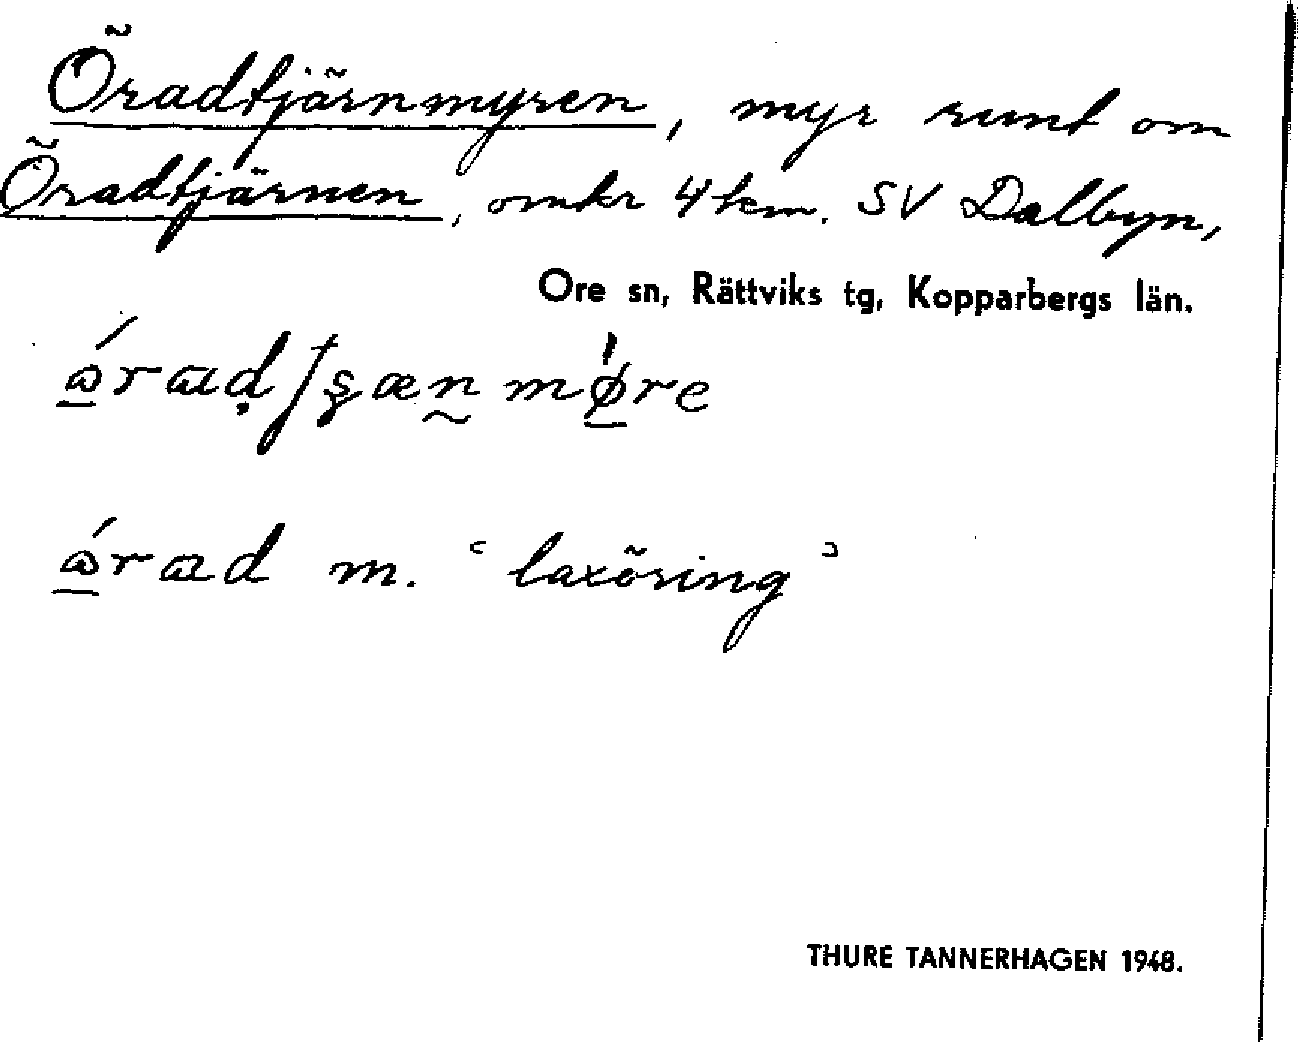 Öradtjärnmyren, myr runt om
Öradtjärnen, omkr 4 km. SV Dalbyn,
Ore sn, Rättviks tg, Kopparbergs län.
m. ‘laxöring’
THURE TANNERHAGEN 1948.